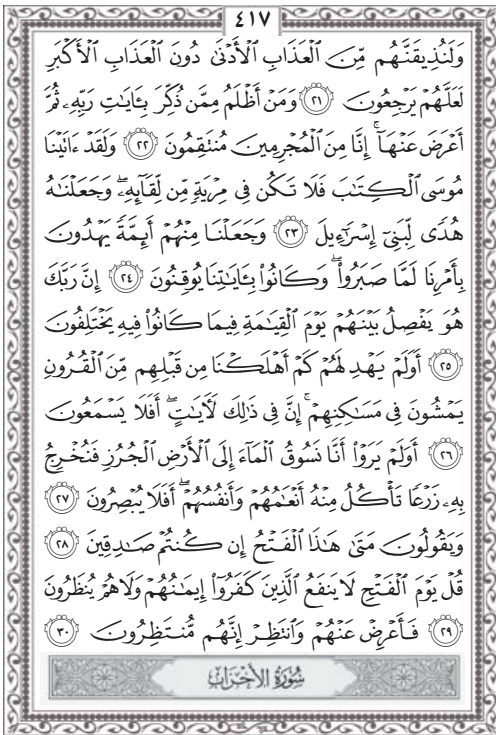 ٤١٧
وَلَنُذِيقَنَّهُم مِّنَ الْعَذَابِ الْأَدْنَىٰ دُونَ الْعَذَابِ الْأَكْبَرِ
لَعَلَّهُمْ يَرْجِعُونَ ٢١ وَمَنْ أَظْلَمُ مِمَّن ذُكِّرَ بِـَٔايَـٰتِ رَبِّهِۦ ثُمَّ
أَعْرَضَ عَنْهَآ ۚ إِنَّا مِنَ الْمُجْرِمِينَ مُنتَقِمُونَ ٢٢ وَلَقَدْ ءَاتَيْنَا
مُوسَى الْكِتَـٰبَ فَلَا تَكُن فِى مِرْيَةٍ مِّن لِّقَآئِهِۦ ۖ وَجَعَلْنَـٰهُ
هُدًى لِّبَنِىٓ إِسْرَٰٓءِيلَ ٢٣ وَجَعَلْنَا مِنْهُمْ أَئِمَّةً يَهْدُونَ
بِأَمْرِنَا لَمَّا صَبَرُوا۟ ۖ وَكَانُوا۟ بِـَٔايَـٰتِنَا يُوقِنُونَ ٢٤ إِنَّ رَبَّكَ
هُوَ يَفْصِلُ بَيْنَهُمْ يَوْمَ الْقِيَـٰمَةِ فِيمَا كَانُوا۟ فِيهِ يَخْتَلِفُونَ
٢٥ أَوَلَمْ يَهْدِ لَهُمْ كَمْ أَهْلَكْنَا مِن قَبْلِهِم مِّنَ الْقُرُونِ
يَمْشُونَ فِى مَسَـٰكِنِهِمْ ۚ إِنَّ فِى ذَٰلِكَ لَـَٔايَـٰتٍ ۖ أَفَلَا يَسْمَعُونَ
٢٦ أَوَلَمْ يَرَوْا۟ أَنَّا نَسُوقُ الْمَآءَ إِلَى الْأَرْضِ الْجُرُزِ فَنُخْرِجُ
بِهِۦ زَرْعًا تَأْكُلُ مِنْهُ أَنْعَـٰمُهُمْ وَأَنفُسُهُمْ ۖ أَفَلَا يُبْصِرُونَ ٢٧
وَيَقُولُونَ مَتَىٰ هَـٰذَا الْفَتْحُ إِن كُنتُمْ صَـٰدِقِينَ ٢٨
قُلْ يَوْمَ الْفَتْحِ لَا يَنفَعُ الَّذِينَ كَفَرُوٓا۟ إِيمَـٰنُهُمْ وَلَا هُمْ يُنظَرُونَ
٢٩ فَأَعْرِضْ عَنْهُمْ وَانتَظِرْ إِنَّهُم مُّنتَظِرُونَ ٣٠
سُورَةُ الْأَحْزَابِ